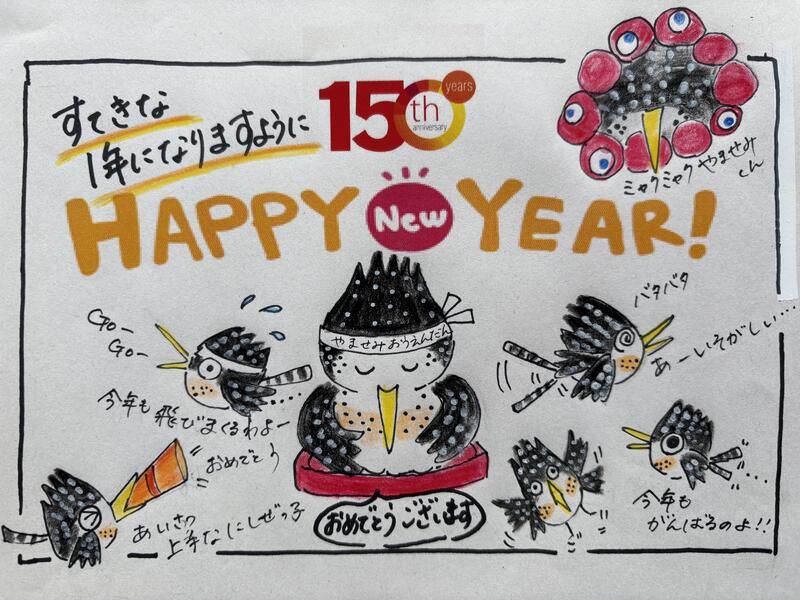 すてきな
1年になりますように
150th
years
anniversary
ミャクミャクやませみ
くん
HAPPY New YEAR!
Go-
Go-
やませみおうえんだん
バタバタ
あーいそがしい…
今年も飛びまくるわよー
おめでとう
あいさつ
上手なにしぜっ子
おめでとうございます
今年も
がんばるのよ!!